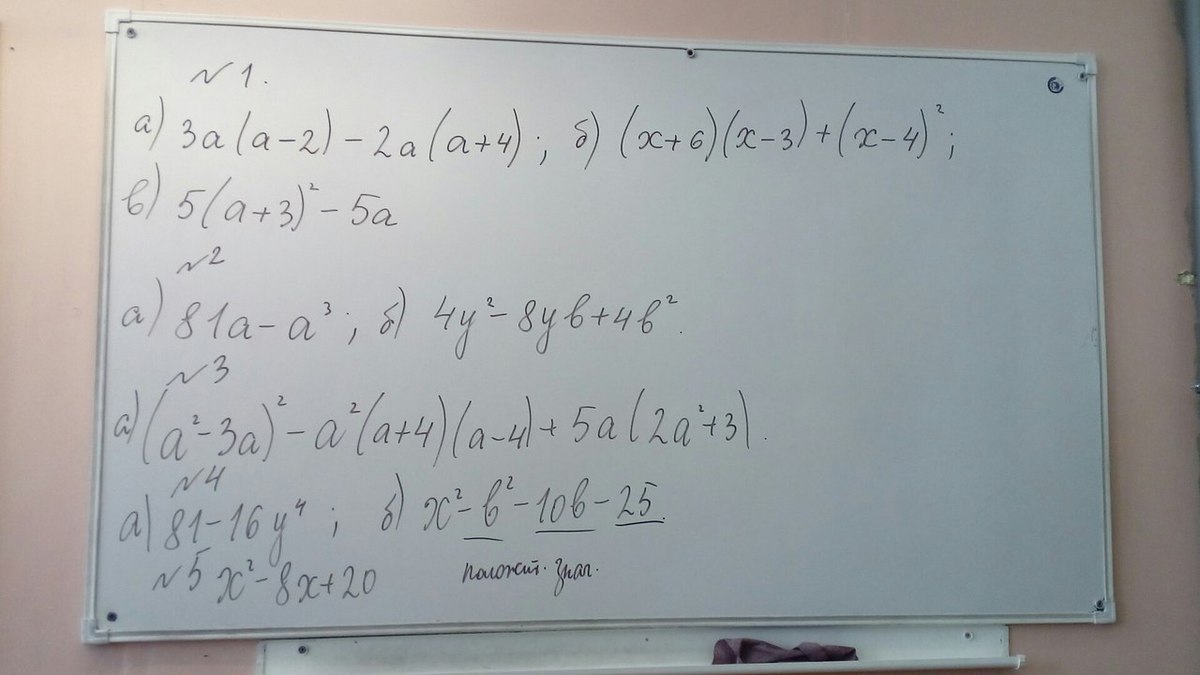 №1.
а) 3a(a-2)-2a(a+4); б) (x+6)(x-3)+(x-4)²;
в) 5(a+3)²-5a
№2
а) 81a-a³; б) 4y²-8yв+4в².
№3
а) (a²-3a)²-a²(a+4)(a-4)+5a(2a²+3).
№4
а) 81-16y⁴; б) x²-в²-10в-25.
№5 x²-8x+20 положит. знач.